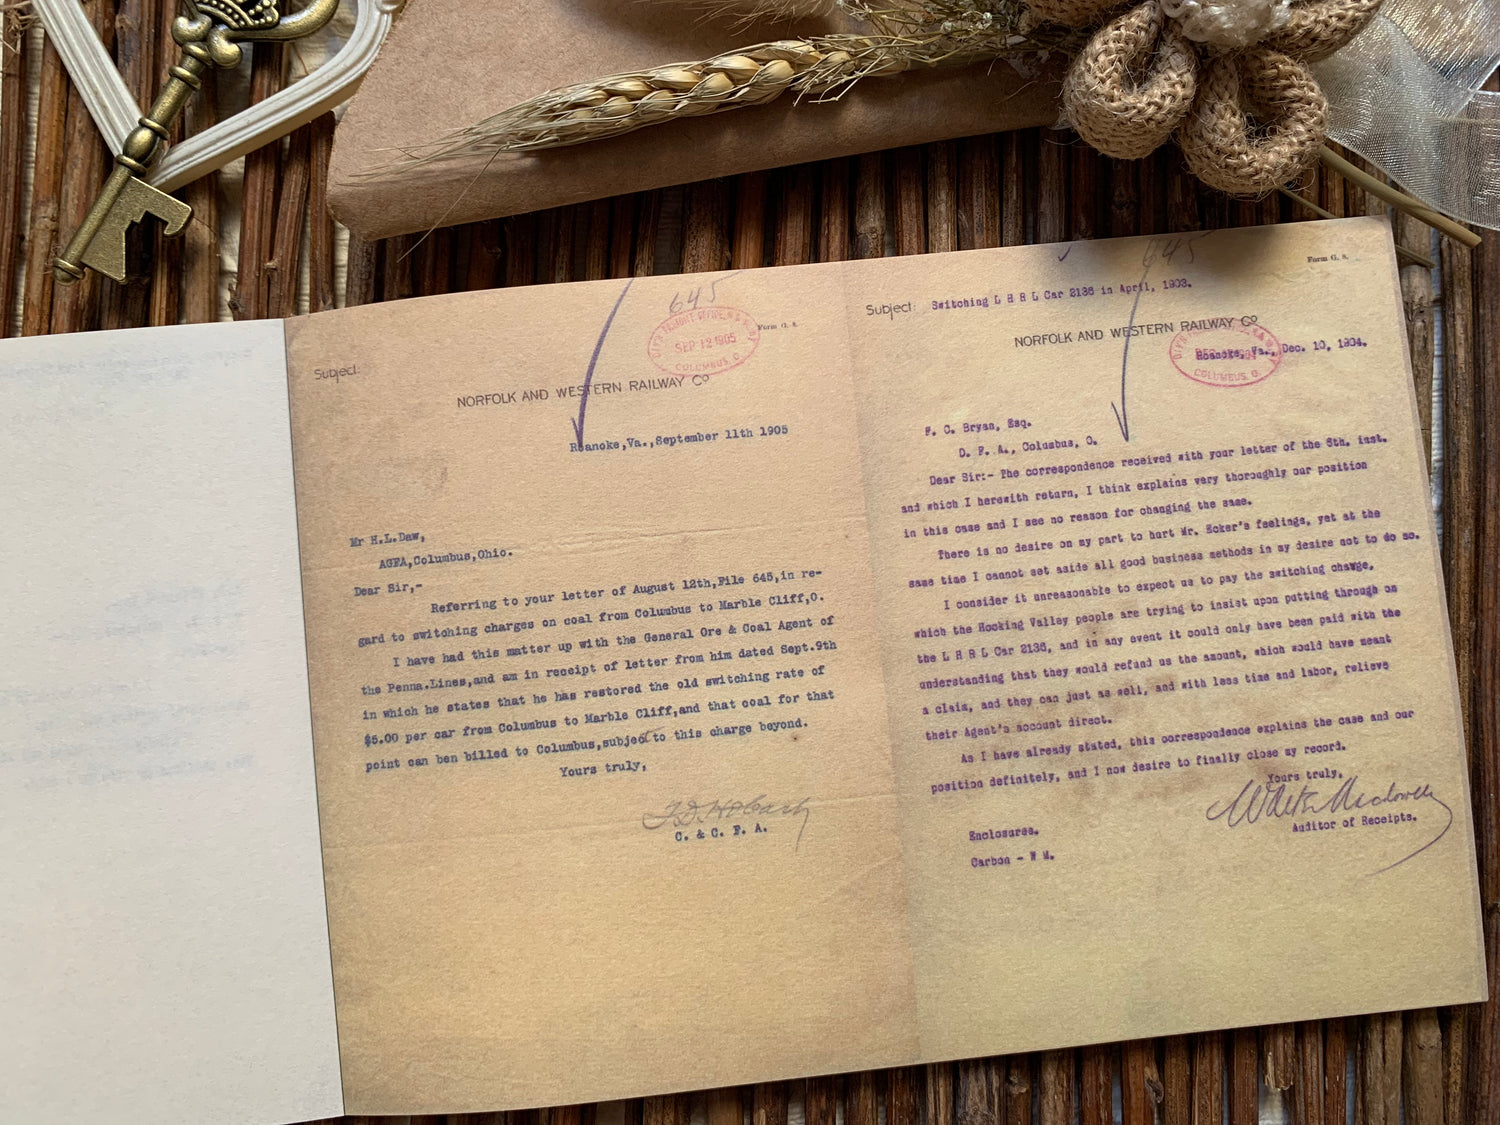 645
DIV'N FREIGHT OFFICE, N & W RY
SEP 12 1905
COLUMBUS, O.
Form G. 8.
Subject:
NORFOLK AND WESTERN RAILWAY Co
Roanoke,Va.,September 11th 1905
Mr H.L.Daw,
AGFA,Columbus,Ohio.
Dear Sir,-
Referring to your letter of August 12th,File 645,in re-
gard to switching charges on coal from Columbus to Marble Cliff,O.
I have had this matter up with the General Ore & Coal Agent of
the Penna.Lines,and am in receipt of letter from him dated Sept.9th
in which he states that he has restored the old switching rate of
$5.00 per car from Columbus to Marble Cliff,and that coal for that
point can ben billed to Columbus,subject to this charge beyond.
Yours truly,
C. & C. F. A.
645
Form G. 8.
Subject: Switching L H R L Car 2136 in April, 1903.
NORFOLK AND WESTERN RAILWAY Co
Roanoke, Va., Dec. 10, 1904.
COLUMBUS, O.
F. C. Bryan, Esq.
D. F. A., Columbus, O.
Dear Sir:- The correspondence received with your letter of the 6th. inst.
and which I herewith return, I think explains very thoroughly our position
in this case and I see no reason for changing the same.
There is no desire on my part to hurt Mr. Hoker's feelings, yet at the
same time I cannot set aside all good business methods in my desire not to do so.
I consider it unreasonable to expect us to pay the switching charge,
which the Hocking Valley people are trying to insist upon putting through on
the L H R L Car 2136, and in any event it could only have been paid with the
understanding that they would refund us the amount, which would have meant
a claim, and they can just as well, and with less time and labor, relieve
their Agent's account direct.
As I have already stated, this correspondence explains the case and our
position definitely, and I now desire to finally close my record.
Yours truly,
Auditor of Receipts.
Enclosures.
Carbon - W M.